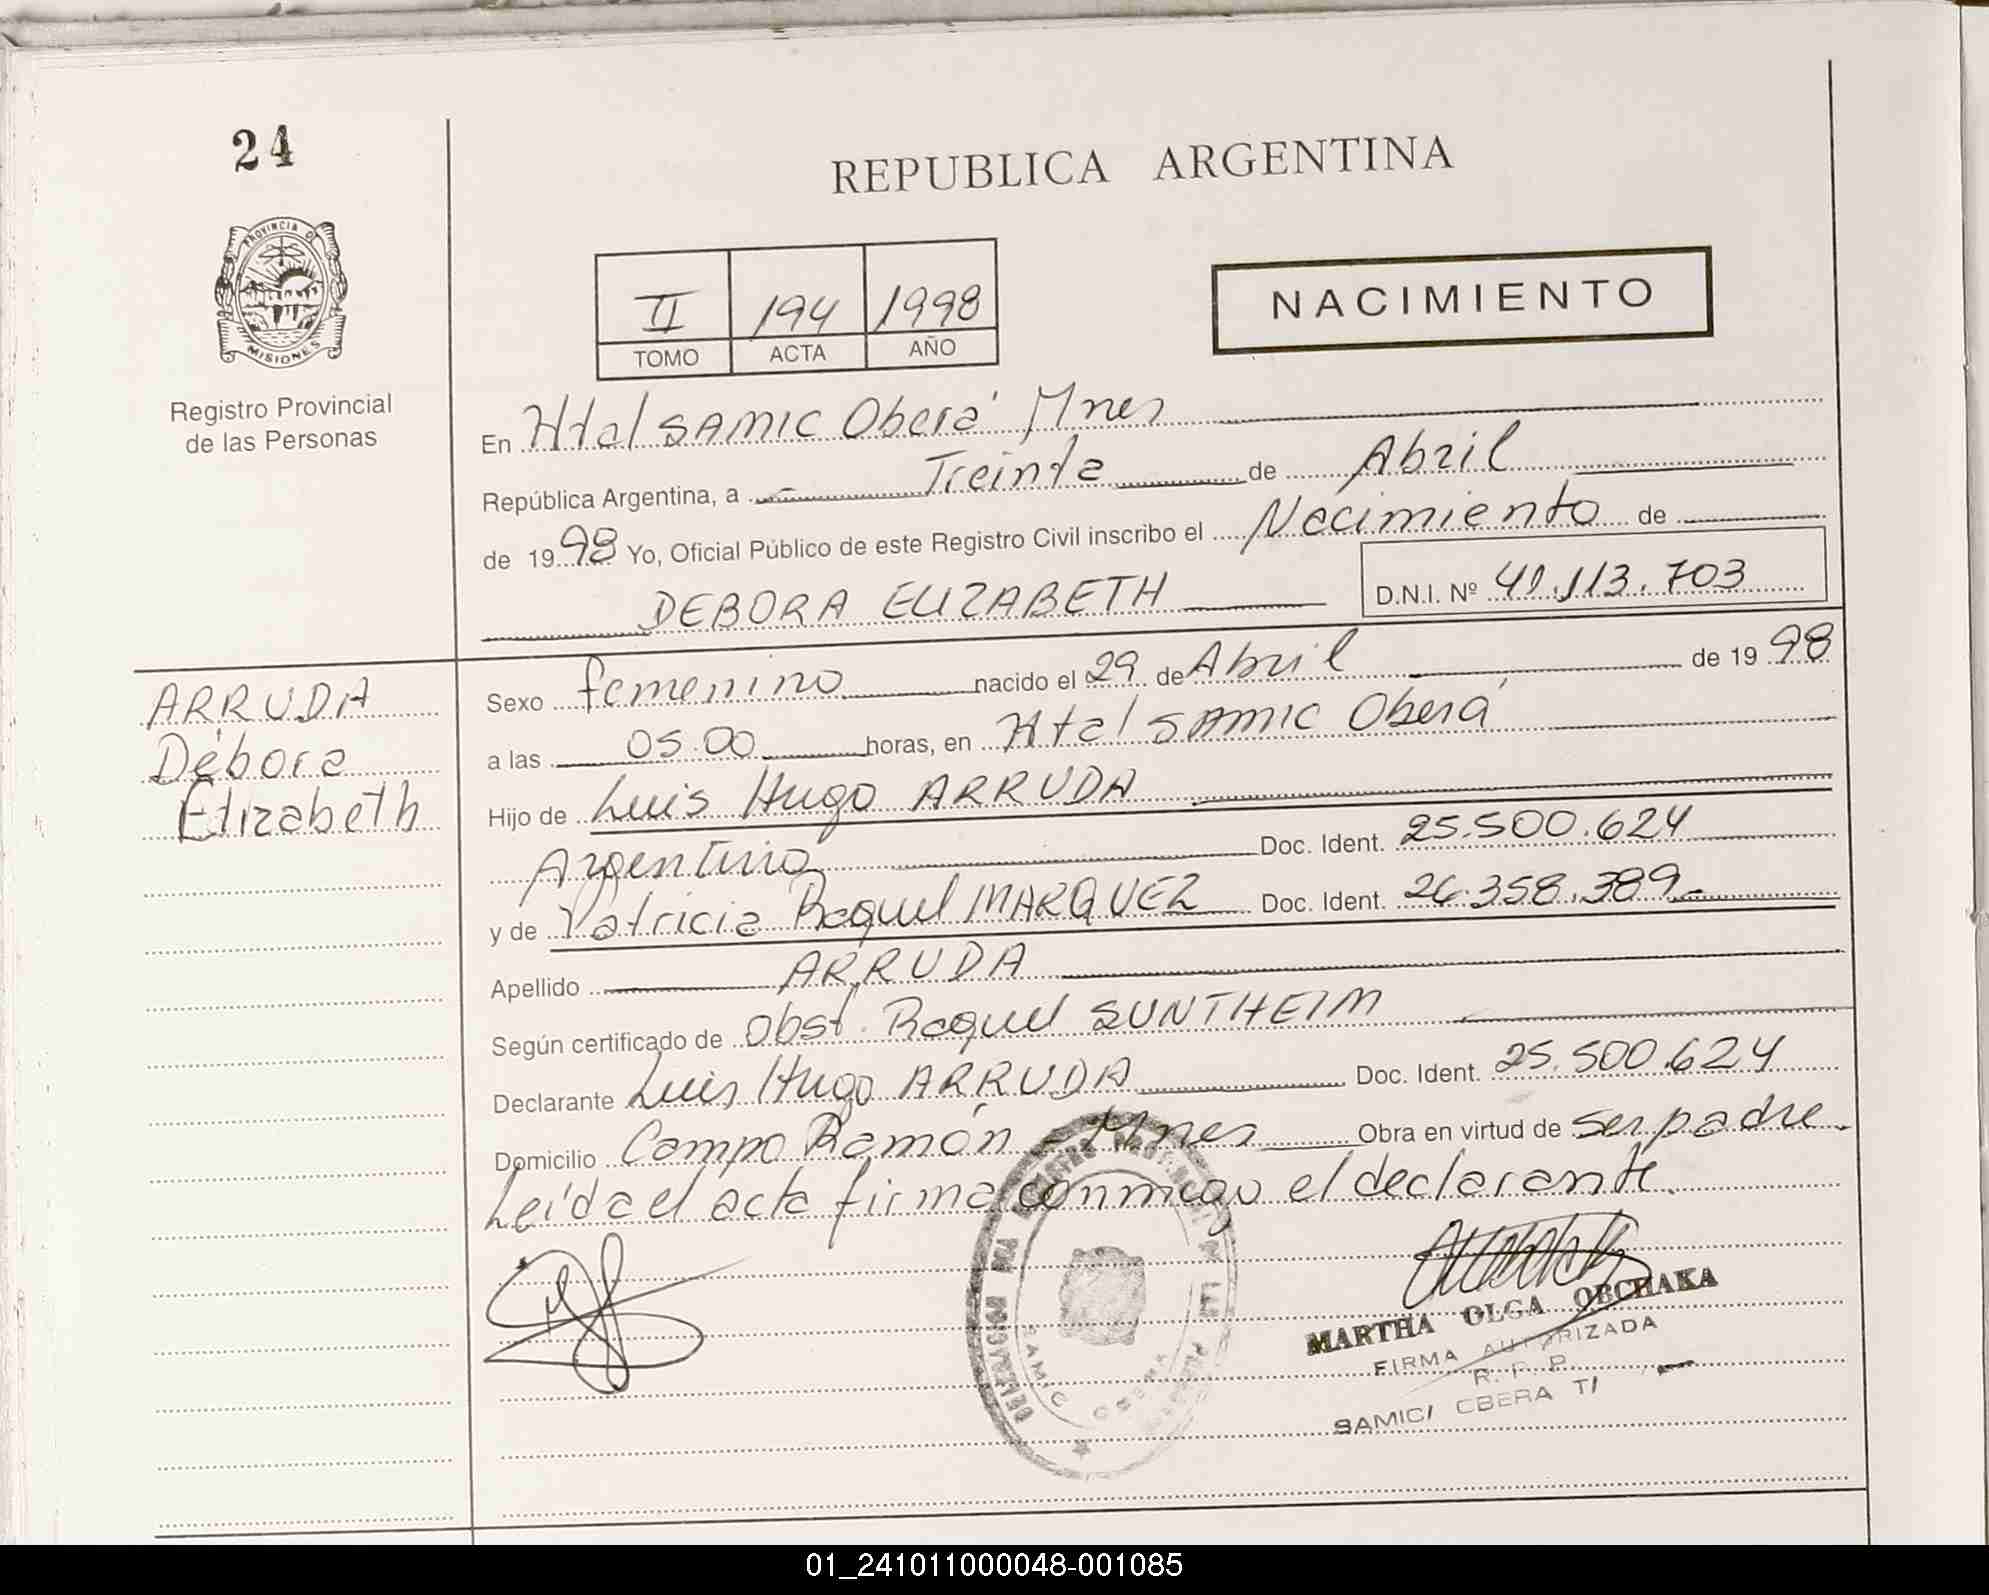 24
REPUBLICA ARGENTINA
PROVINCIA D
MISIONES
Registro Provincial
de las Personas
II 194 1998
TOMO ACTA AÑO
NACIMIENTO
En Htal SAMIC Oberá Mnes
República Argentina, a Treinta de Abril
de 1998 Yo, Oficial Público de este Registro Civil inscribo el Nacimiento de
DEBORA ELIZABETH D.N.I. Nº 41.113.703
ARRUDA
Débora
Elizabeth
Sexo femenino nacido el 29 de Abril de 1998
a las 05.00 horas, en Htal SAMIC Oberá
Hijo de Luis Hugo ARRUDA
Argentino Doc. Ident. 25.500.624
y de Patricia Raquel MARQUEZ Doc. Ident. 26.358.389.-
Apellido ARRUDA
Según certificado de Obst. Raquel SUNTHEIM
Declarante Luis Hugo ARRUDA Doc. Ident. 25.500.624
Domicilio Campo Ramón - Mnes Obra en virtud de ser padre.
Leída el acta firma conmigo el declarante.
MARTHA OLGA OBCHAKA
FIRMA AUTORIZADA
R. P. P.
SAMIC/ OBERA
SAMIC OBERA
01_241011000048-001085